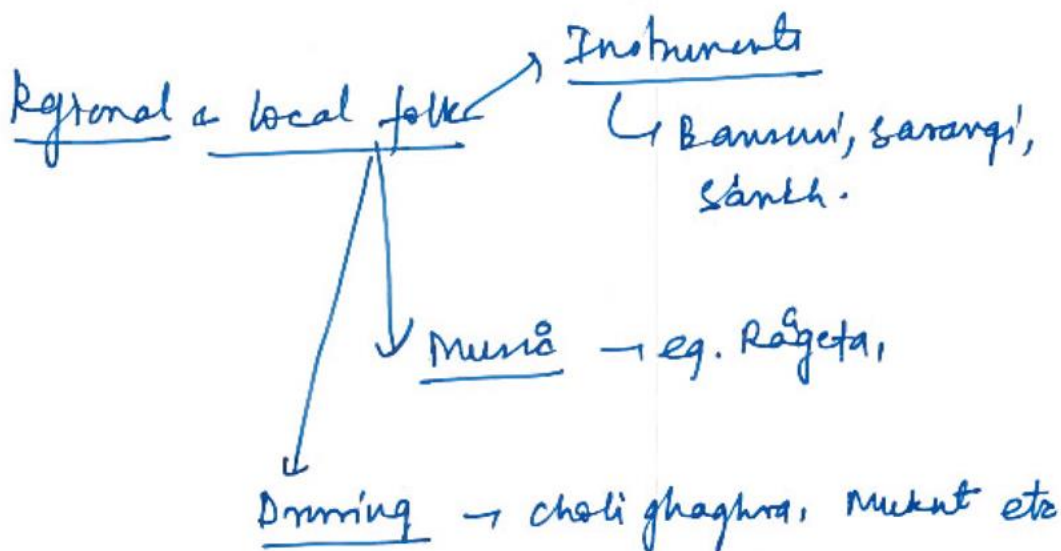 Regional & local folk → Instruments
↳ Bansuri, sarangi,
sankh.
Music → eg.
Dressing → choli ghaghra, Mukut etc